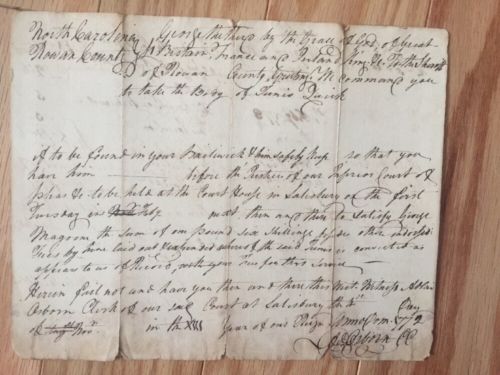 North Carolina George the third by the Grace of God, of Great
Rowan County Britain France and Ireland King &c To the Sheriff
of Rowan County Greeting We Command you
to take the Body of Tunis Quick
if to be found in your Bailiwick & him safely keep so that you
have him before the Justices of our Inferior Court of
pleas &c to be held at the Court House in Salisbury on the first
Tuesday in Feby next then and there to Satisfy George
Magoon the sum of one pound six Shillings
fees by him laid out & expended where of the said Tunis is convicted as
appears to us of Record, with your fees for this Service
Herein fail not and have you then and there this Writ. Witness Adlai
Osborn Clerk of our said Court at Salisbury the
of Novr in the XIII Year of our Reign Anno Dom. 1772
Ad Osborn CC